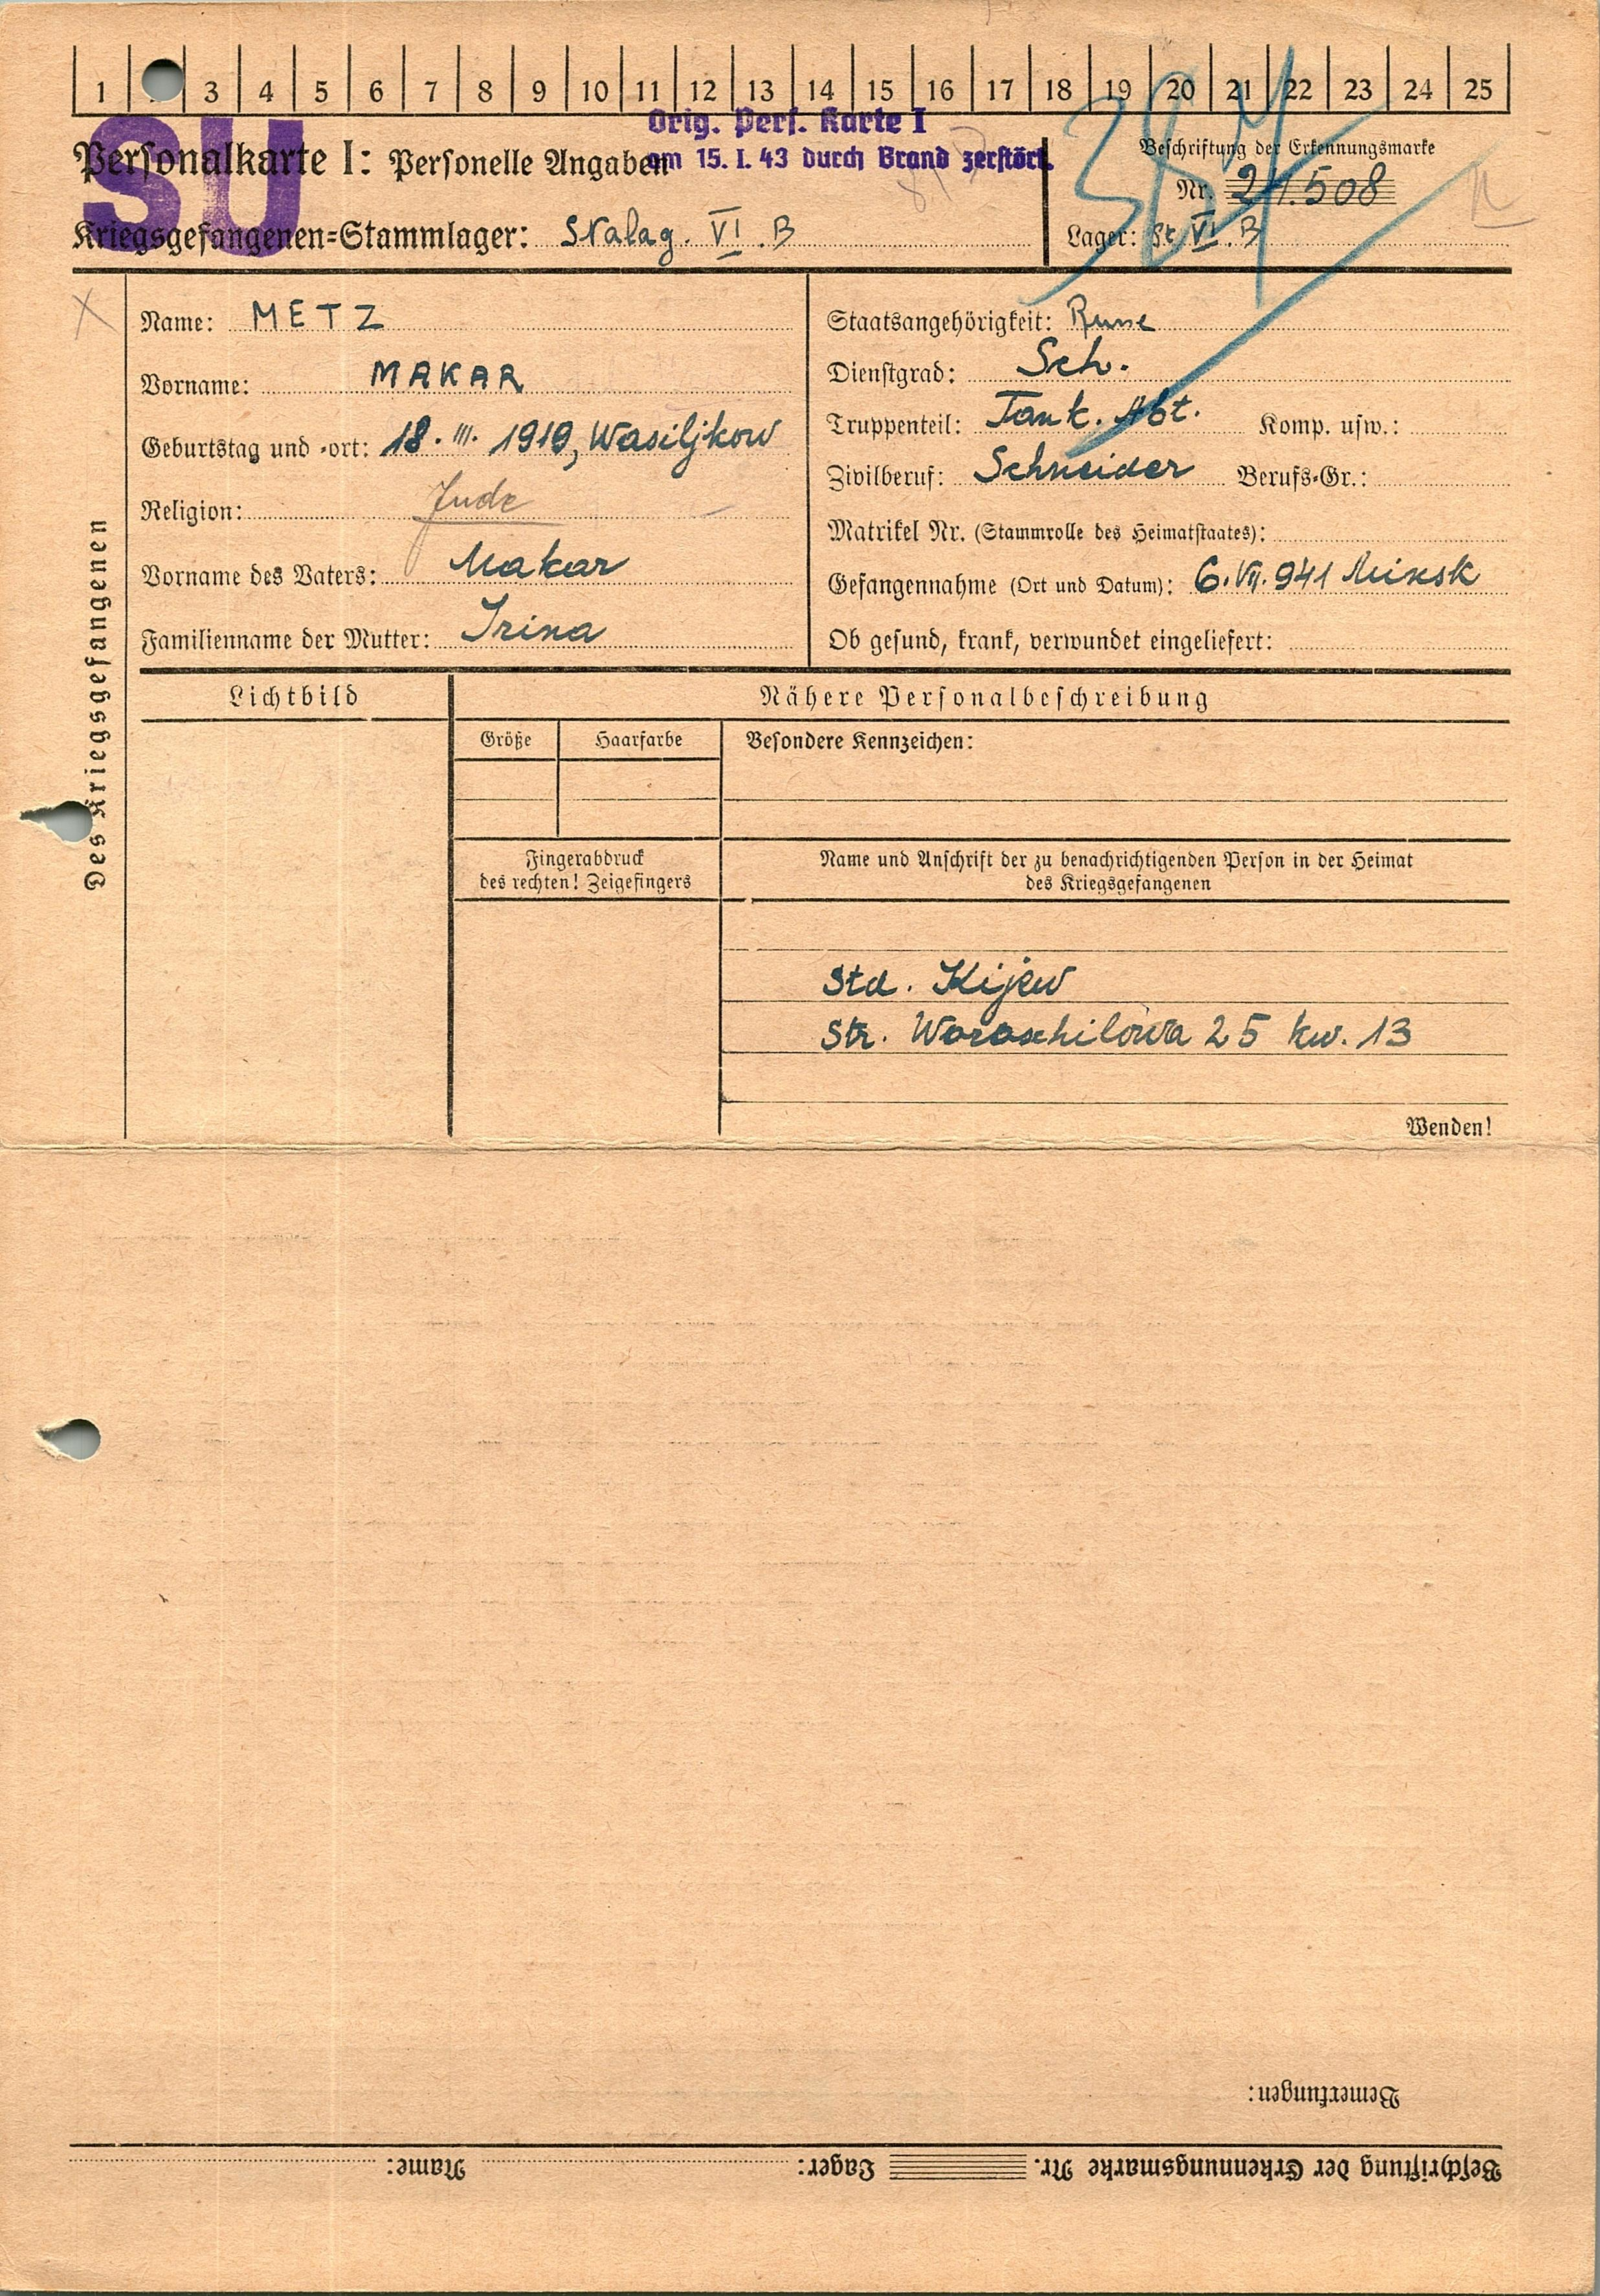 1 3 4 5 6 7 8 9 10 11 12 13 14 15 16 17 18 19 20 21 22 23 24 25
SU
Orig. Pers. Karte I
am 15. I. 43 durch Brand zerstört.
Personalkarte I: Personelle Angaben
Kriegsgefangenen=Stammlager: Stalag. VI. B
Beschriftung der Erkennungsmarke
Nr. 21.508
Lager: St VI. B
Des Kriegsgefangenen
Name: METZ
Vorname: MAKAR
Geburtstag und -ort: 18. III. 1919, Wasiljkow
Religion: Jude
Vorname des Vaters: Makar
Familienname der Mutter: Irina
Staatsangehörigkeit: Russe
Dienstgrad: Sch.
Truppenteil: Tank. Abt. Komp. usw.:
Zivilberuf: Schneider Berufs-Gr.:
Matrikel Nr. (Stammrolle des Heimatstaates):
Gefangennahme (Ort und Datum): 6. VII. 941 Minsk
Ob gesund, krank, verwundet eingeliefert:
Lichtbild
Nähere Personalbeschreibung
Größe
Haarfarbe
Besondere Kennzeichen:
Fingerabdruck
des rechten! Zeigefingers
Name und Anschrift der zu benachrichtigenden Person in der Heimat
des Kriegsgefangenen
Std. Kijew
Str. Woroschilowa 25 kw. 13
Wenden!
Bemerkungen:
Beschriftung der Erkennungsmarke Nr. Lager: Name: